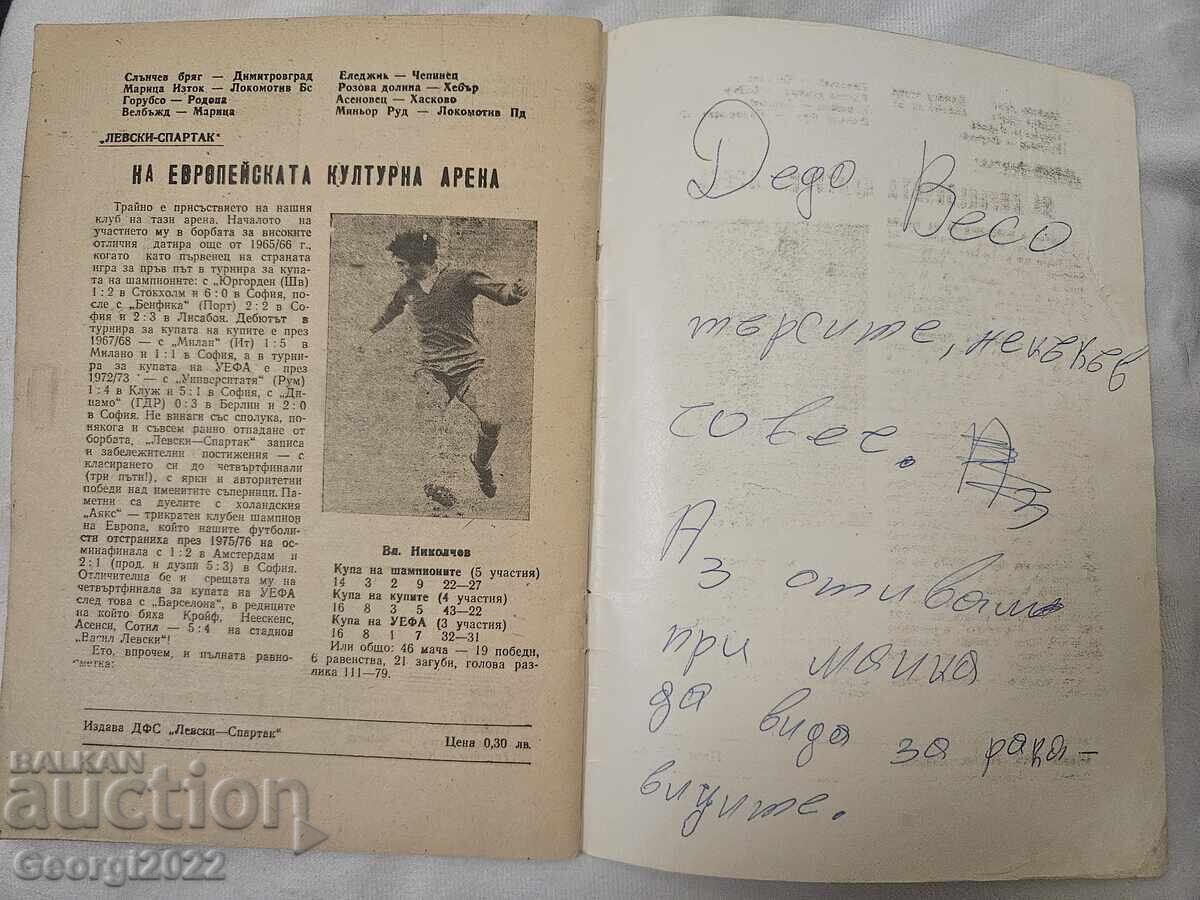 Слънчев бряг — Димитровград
Марица Изток — Локомотив Бс
Горубсо — Родопа
Велбъжд — Марица
Еледжик — Чепинец
Розова долина — Хебър
Асеновец — Хасково
Миньор Руд — Локомотив Пд
„ЛЕВСКИ-СПАРТАК“
НА ЕВРОПЕЙСКАТА КУЛТУРНА АРЕНА
Трайно е присъствието на нашия
клуб на тази арена. Началото на
участието му в борбата за високите
отличия датира още от 1965/66 г.,
когато като първенец на страната
игра за пръв път в турнира за купа-
та на шампионите: с „Юргорден (Шв)
1:2 в Стокхолм и 6:0 в София, по-
сле с „Бенфика“ (Порт) 2:2 в Со-
фия и 2:3 в Лисабон. Дебютът в
турнира за купата на купите е през
1967/68 — с „Милан“ (Ит) 1:5 в
Милано и 1:1 в София, а в турни-
ра за купата на УЕФА е през
1972/73 — с „Университатя“ (Рум)
1:4 в Клуж и 5:1 в София, с „Ди-
намо“ (ГДР) 0:3 в Берлин и 2:0
в София. Не винаги със сполука, по-
някога и съвсем ранно отпадане от
борбата, „Левски—Спартак“ записа
и забележителни постижения — с
класирането си до четвъртфинали
(три пъти!), с ярки и авторитетни
победи над именитите съперници. Па-
метни са дуелите с холандския
„Аякс“ — трикратен клубен шампион
на Европа, който нашите футболи-
сти отстраниха през 1975/76 на ос-
минафинала с 1:2 в Амстердам и
2:1 (прод. и дузпи 5:3) в София.
Отличителна бе и срещата му на
четвъртфинала за купата на УЕФА
след това с „Барселона“, в редиците
на който бяха Кройф, Неескенс,
Асенси, Сотил — 5:4 на стадион
„Васил Левски“!
Ето, впрочем, и пълната равно-
сметка:
Вл. Николчев
Купа на шампионите (5 участия)
14 3 2 9 22—27
Купа на купите (4 участия)
16 8 3 5 43—22
Купа на УЕФА (3 участия)
16 8 1 7 32—31
Или общо: 46 мача — 19 победи,
6 равенства, 21 загуби, голова раз-
лика 111—79.
Издава ДФС „Левски—Спартак“
Цена 0,30 лв.
Дедо Весо
търсите, некъкъв
човек.
Аз отивам
при майка
да вида за рака-
виците.
BALKAN
auction
Georgi2022